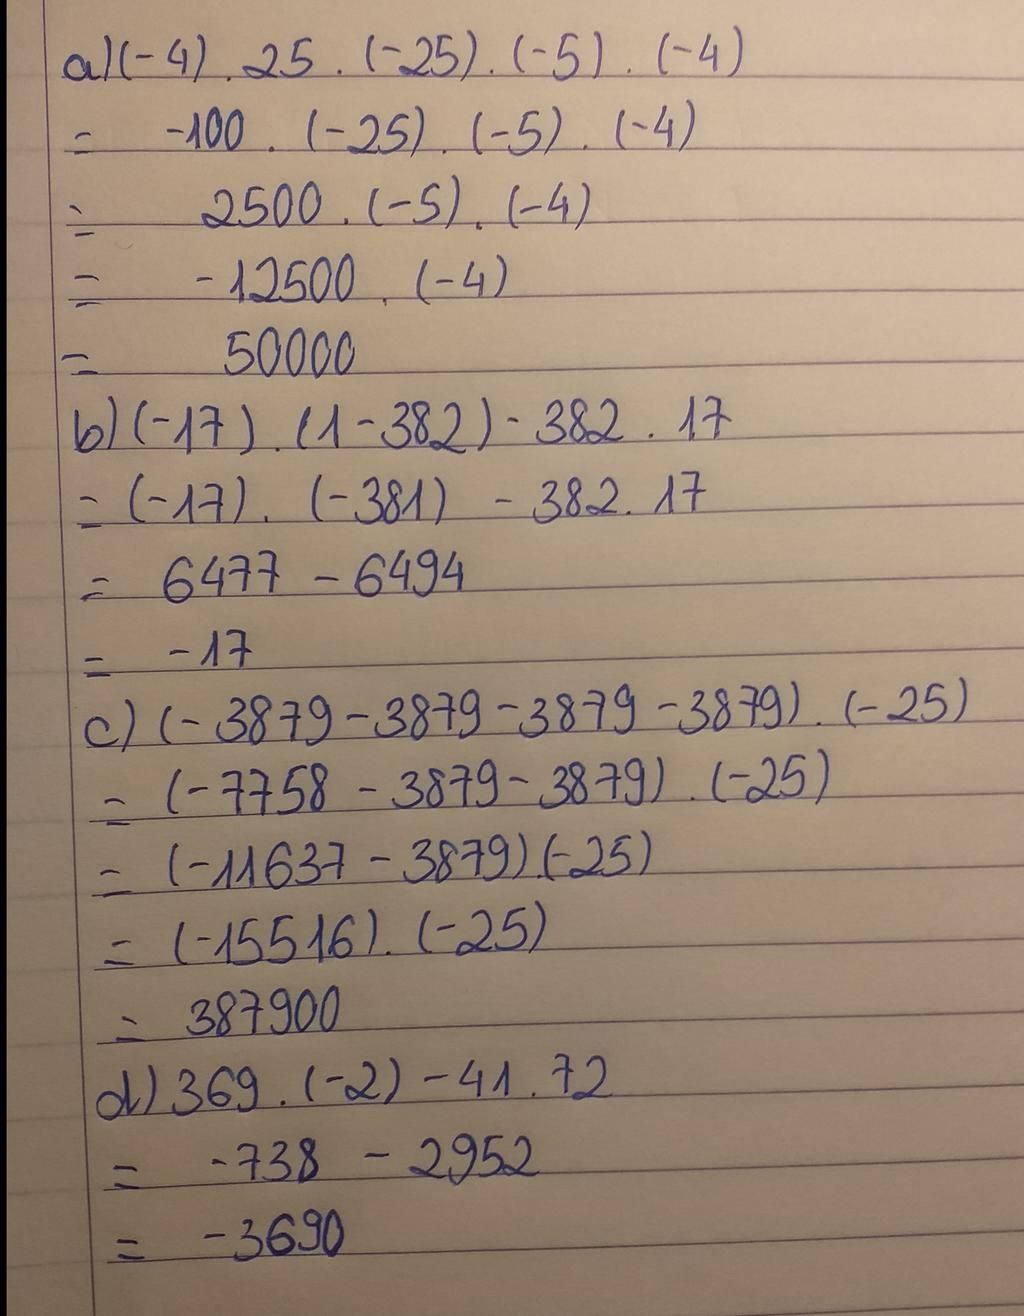 a) (-4) . 25 . (-25) . (-5) . (-4)
= -100 . (-25) . (-5) . (-4)
= 2500 . (-5) . (-4)
= -12500 . (-4)
= 50000
b) (-17) . (1 - 382) - 382 . 17
= (-17) . (-381) - 382 . 17
= 6477 - 6494
= -17
c) (-3879 - 3879 - 3879 - 3879) . (-25)
= (-7758 - 3879 - 3879) . (-25)
= (-11637 - 3879) (-25)
= (-15516) . (-25)
= 387900
d) 369 . (-2) - 41 . 72
= -738 - 2952
= -3690